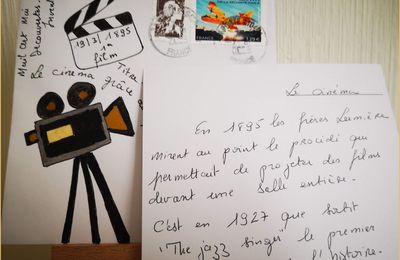 Mail Art Mini
Découvertes
19/3/1895
1er
film
Titre
Le cinéma grâce
FRANCE
FRANCE
Le cinéma
En 1895 les frères Lumière
mirent au point le procédé qui
permettait de projeter des films
devant une salle entière.
C'est en 1927 que sortit
"The jazz singer" le premier
l'histoire.